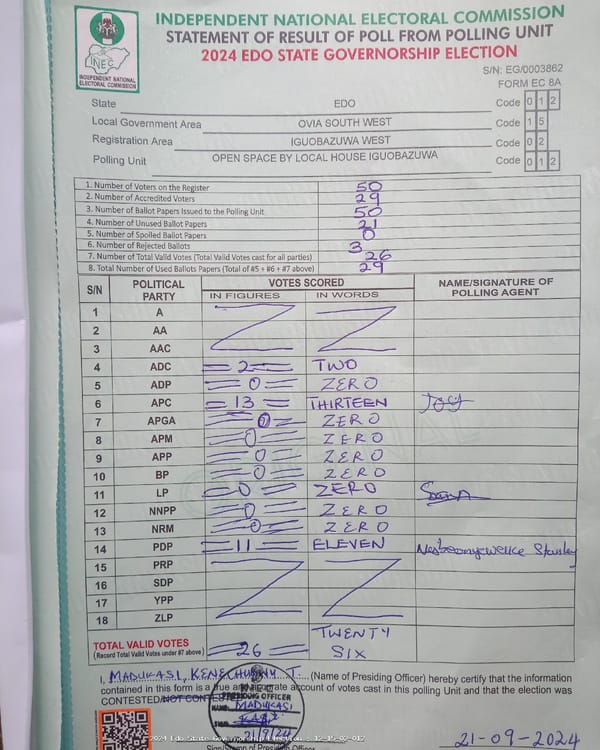 INDEPENDENT NATIONAL ELECTORAL COMMISSION
STATEMENT OF RESULT OF POLL FROM POLLING UNIT
2024 EDO STATE GOVERNORSHIP ELECTION
INEC
INDEPENDENT NATIONAL ELECTORAL COMMISSION
S/N: EG/0003862
FORM EC 8A
State EDO Code 0 1 2
Local Government Area OVIA SOUTH WEST Code 1 5
Registration Area IGUOBAZUWA WEST Code 0 2
Polling Unit OPEN SPACE BY LOCAL HOUSE IGUOBAZUWA Code 0 1 2
1. Number of Voters on the Register 50
2. Number of Accredited Voters 29
3. Number of Ballot Papers Issued to the Polling Unit 50
4. Number of Unused Ballot Papers 21
5. Number of Spoiled Ballot Papers 0
6. Number of Rejected Ballots 3
7. Number of Total Valid Votes (Total Valid Votes cast for all parties) 26
8. Total Number of Used Ballots Papers (Total of #5 + #6 + #7 above) 29
S/N POLITICAL PARTY VOTES SCORED NAME/SIGNATURE OF POLLING AGENT
IN FIGURES IN WORDS
1 A
2 AA
3 AAC
4 ADC 2 TWO
5 ADP 0 ZERO
6 APC 13 THIRTEEN Joy
7 APGA 0 ZERO
8 APM 0 ZERO
9 APP 0 ZERO
10 BP 0 ZERO
11 LP 0 ZERO
12 NNPP 0 ZERO
13 NRM 0 ZERO
14 PDP 11 ELEVEN Stanley
15 PRP
16 SDP
17 YPP
18 ZLP
TOTAL VALID VOTES 26 TWENTY SIX
(Record Total Valid Votes under #7 above)
I, MADUKASI, KENECHUKWU T. (Name of Presiding Officer) hereby certify that the information
contained in this form is a true and accurate account of votes cast in this polling Unit and that the election was
CONTESTED/NOT CONTESTED
PRESIDING OFFICER
NAME: MADUKASI
SIGN
21/9/24
21-09-2024